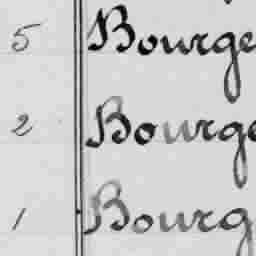 5 Bourge
2 Bourge
1 Bourg